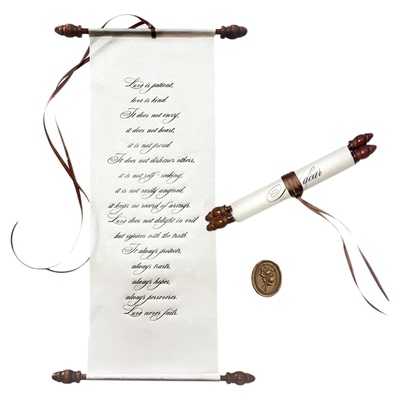 Love is patient,
love is kind.
It does not envy,
it does not boast,
it is not proud.
It does not dishonor others,
it is not self-seeking,
it is not easily angered,
it keeps no record of wrongs.
Love does not delight in evil
but rejoices with the truth.
It always protects,
always trusts,
always hopes,
always perseveres.
Love never fails.